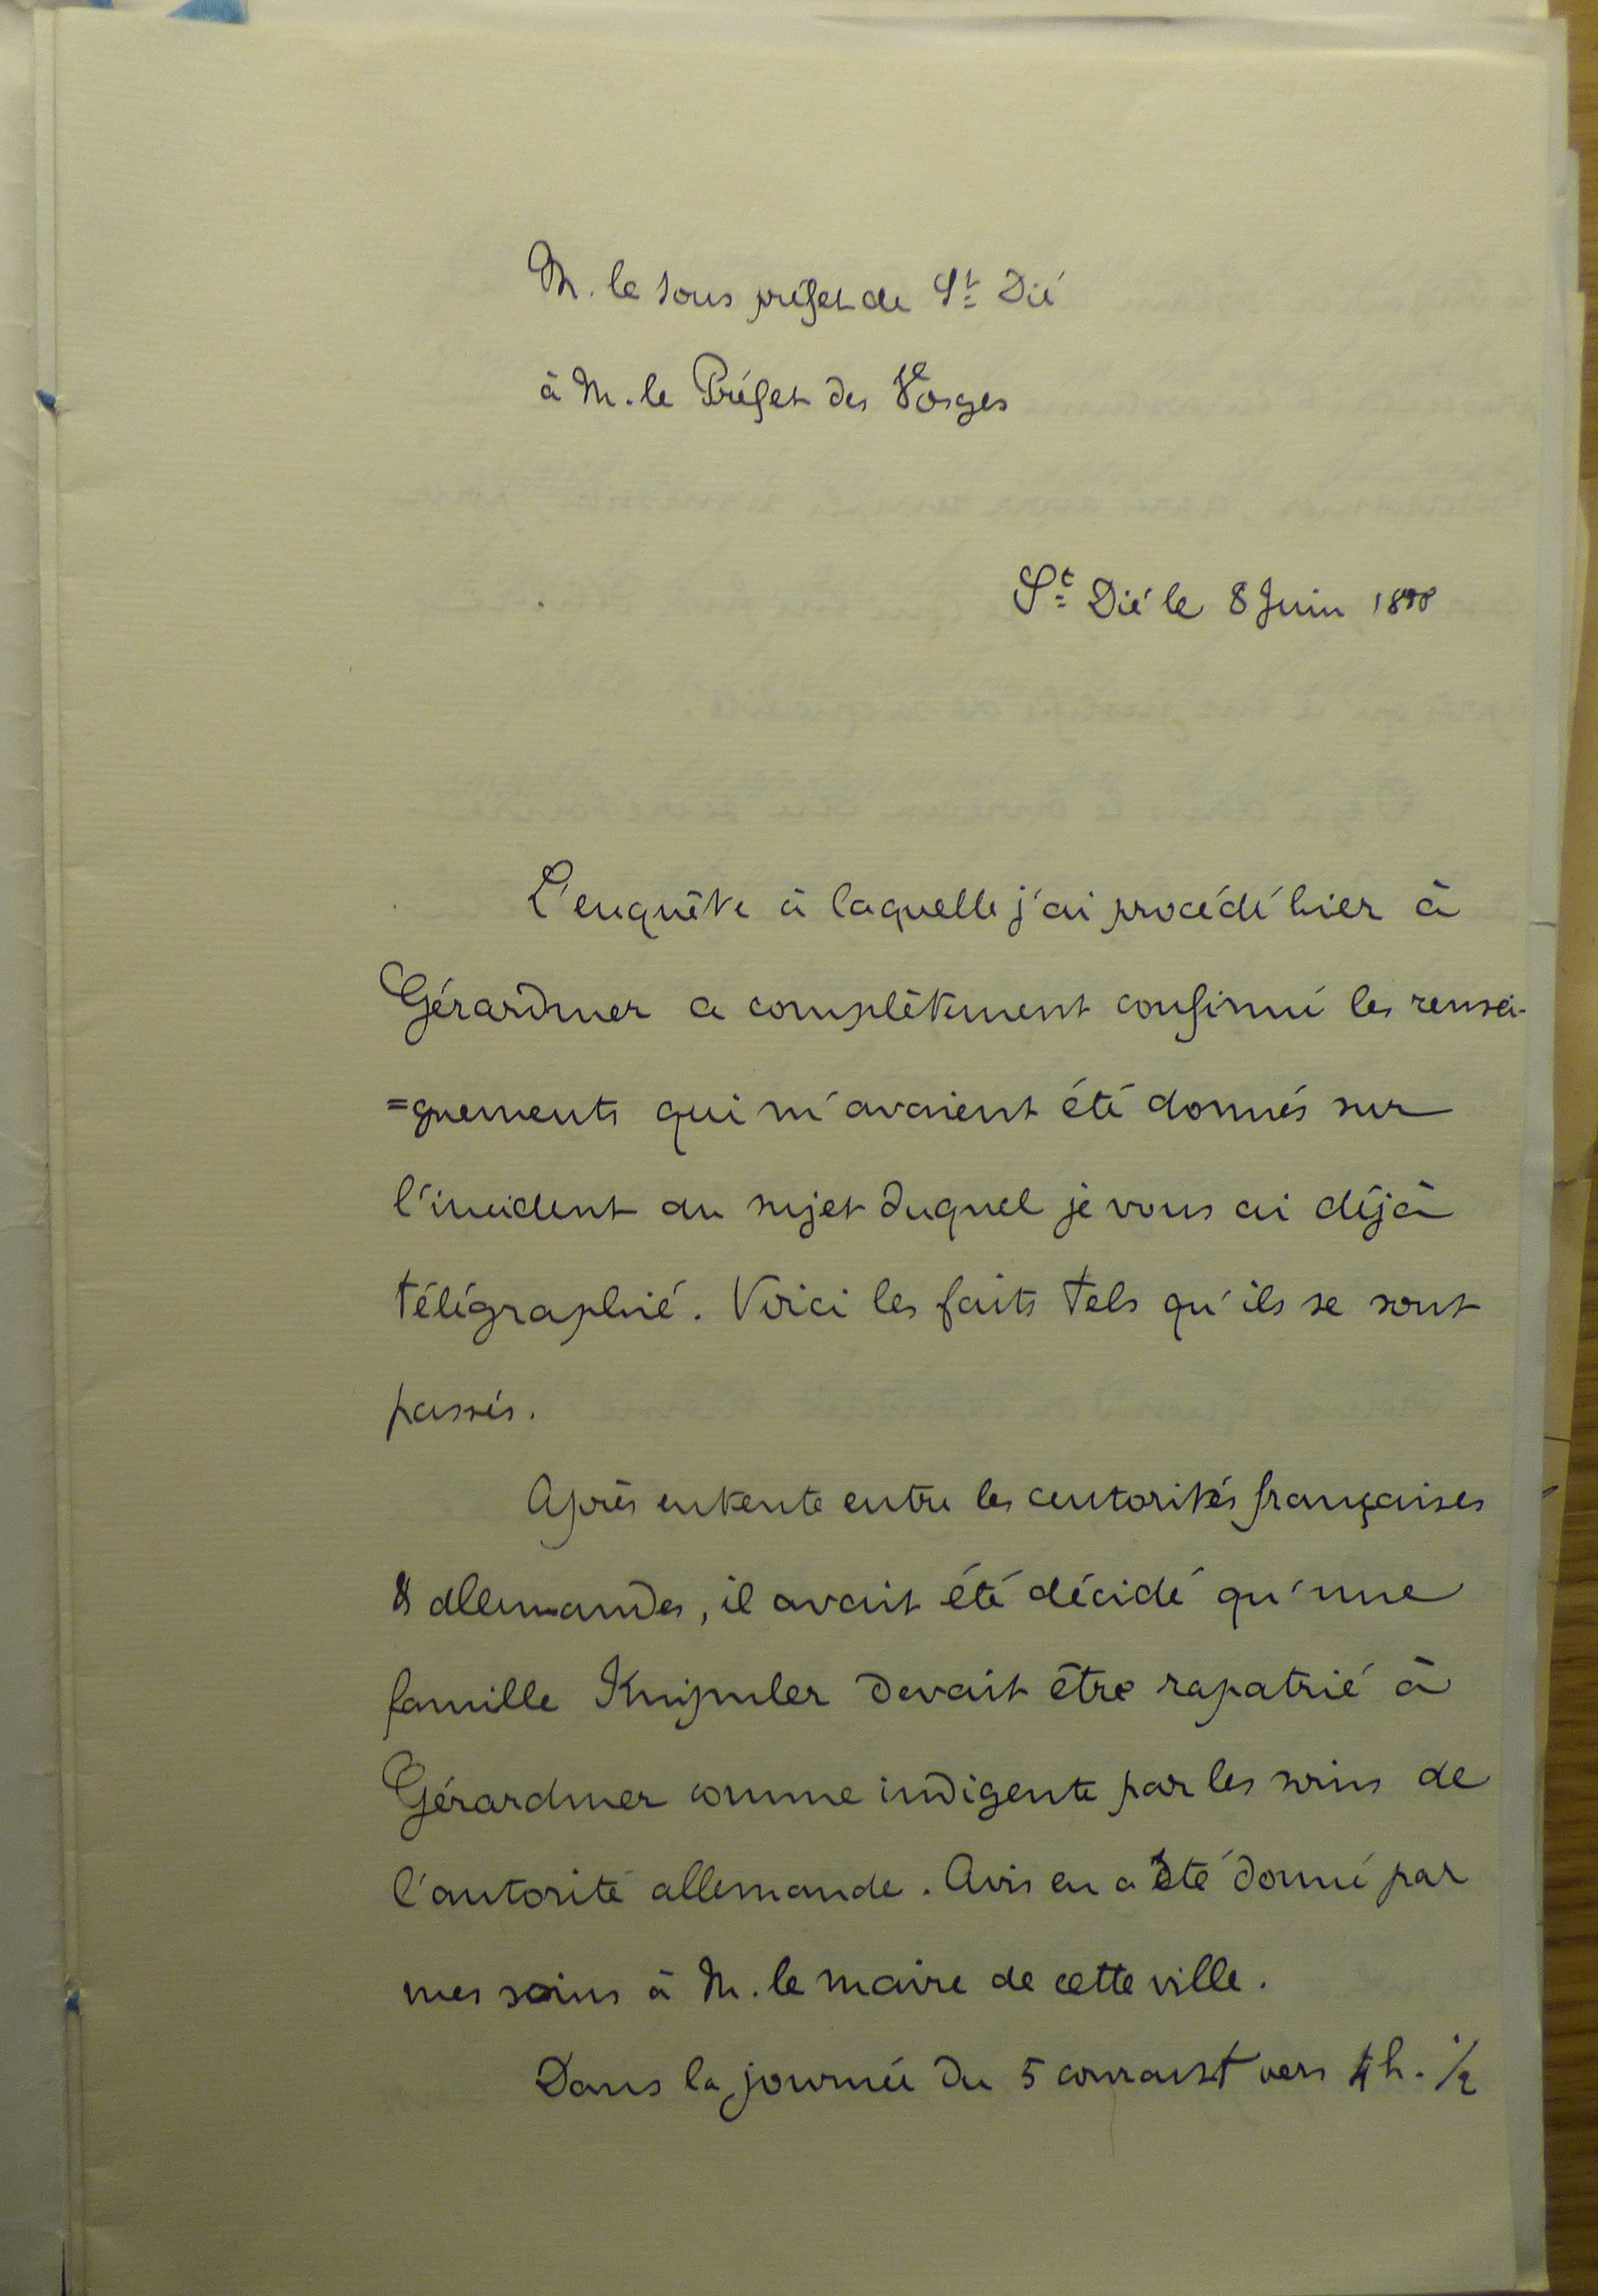 M. le sous préfet de St Dié
à M. le Préfet des Vosges
St Dié le 8 Juin 1898
L'enquête à laquelle j'ai procédé hier à
Gérardmer a complètement confirmé les rensei-
=gnements qui m'avaient été donnés sur
l'incident au sujet duquel je vous ai déjà
télégraphié. Voici les faits tels qu'ils se sont
passés.
Après entente entre les autorités françaises
& allemandes, il avait été décidé qu'une
famille Knipiler devait être rapatrié à
Gérardmer comme indigente par les soins de
l'autorité allemande. Avis en a été donné par
mes soins à M. le maire de cette ville.
Dans la journée du 5 courant vers 4 h. 1/2